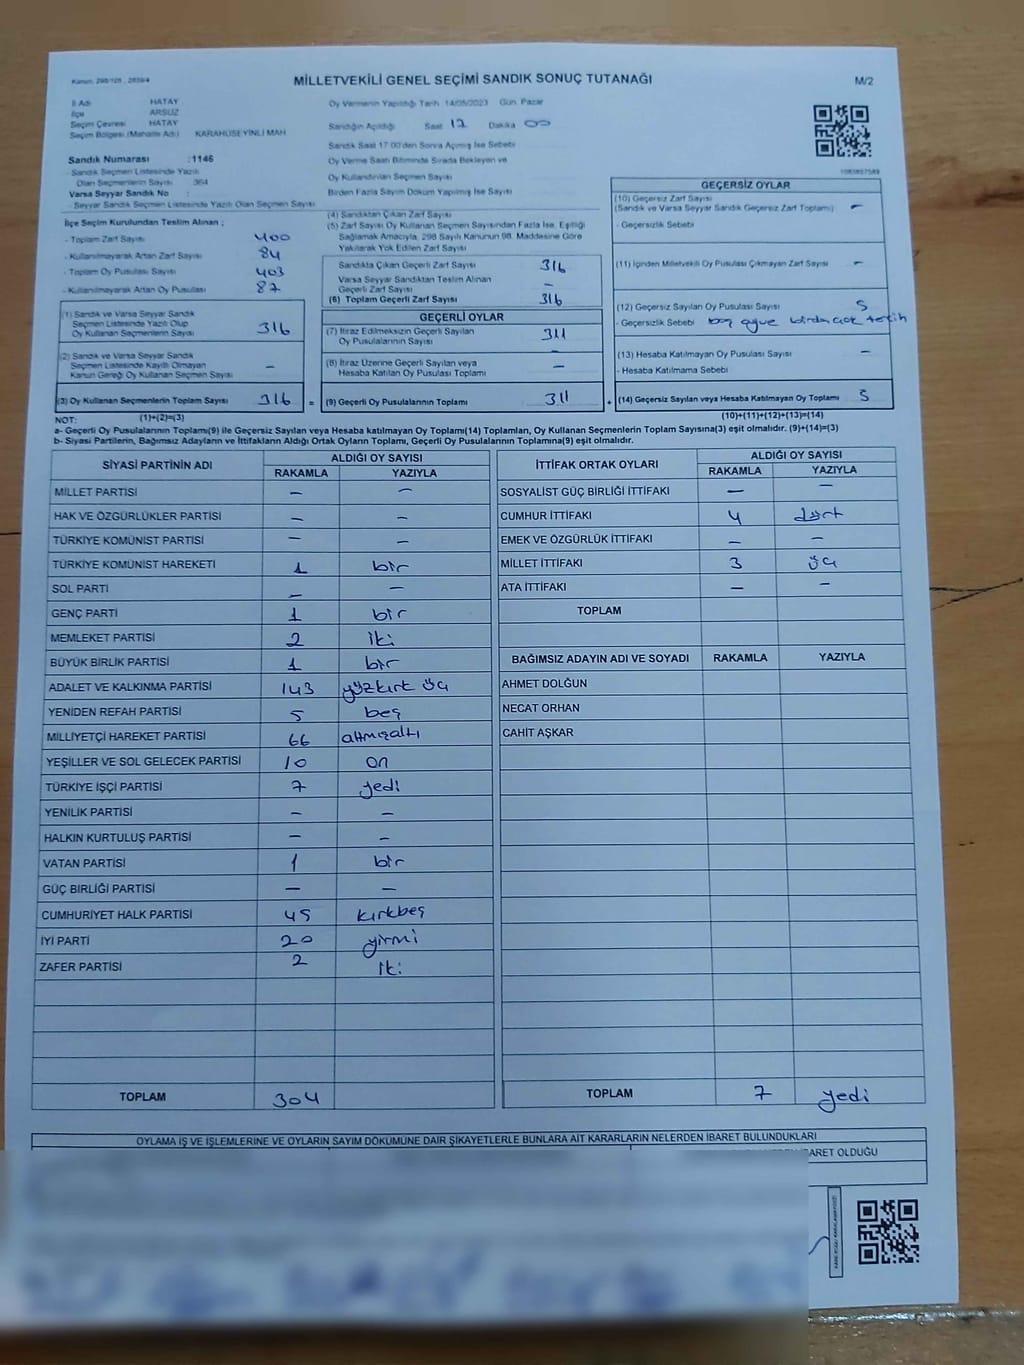 Kanun: 298/105 , 2839/4
MİLLETVEKİLİ GENEL SEÇİMİ SANDIK SONUÇ TUTANAĞI
M/2
İl Adı HATAY
İlçe ARSUZ
Seçim Çevresi HATAY
Seçim Bölgesi (Mahalle Adı) KARAHÜSEYİNLİ MAH
Oy Vermenin Yapıldığı Tarih 14/05/2023 Gün Pazar
Sandığın Açıldığı Saat 17 Dakika 00
Sandık Saat 17:00'den Sonra Açılmış İse Sebebi
Oy Verme Saati Bitiminde Sırada Bekleyen ve
Oy Kullandırılan Seçmen Sayısı
Birden Fazla Sayım Döküm Yapılmış İse Sayısı
Sandık Numarası :1146
- Sandık Seçmen Listesinde Yazılı
Olan Seçmenlerin Sayısı 364
Varsa Seyyar Sandık No :
- Seyyar Sandık Seçmen Listesinde Yazılı Olan Seçmen Sayısı
İlçe Seçim Kurulundan Teslim Alınan ;
- Toplam Zarf Sayısı 400
- Kullanılmayarak Artan Zarf Sayısı 84
- Toplam Oy Pusulası 403
- Kullanılmayarak Artan Oy Pusulası 87
(1) Sandık ve Varsa Seyyar Sandık
Seçmen Listesinde Yazılı Olup
Oy Kullanan Seçmenlerin Sayısı 316
(2) Sandık ve Varsa Seyyar Sandık
Seçmen Listesinde Kayıtlı Olmayan
Kanun Gereği Oy Kullanan Seçmen Sayısı –
(3) Oy Kullanan Seçmenlerin Toplam Sayısı 316
(4) Sandıktan Çıkan Zarf Sayısı
(5) Zarf Sayısı Oy Kullanan Seçmen Sayısından Fazla İse, Eşitliği
Sağlamak Amacıyla, 298 Sayılı Kanunun 98. Maddesine Göre
Yakılarak Yok Edilen Zarf Sayısı
Sandıkta Çıkan Geçerli Zarf Sayısı 316
Varsa Seyyar Sandıktan Teslim Alınan
Geçerli Zarf Sayısı –
(6) Toplam Geçerli Zarf Sayısı 316
GEÇERLİ OYLAR
(7) İtiraz Edilmeksizin Geçerli Sayılan
Oy Pusulalarının Sayısı 311
(8) İtiraz Üzerine Geçerli Sayılan veya
Hesaba Katılan Oy Pusulası Toplamı –
= (9) Geçerli Oy Pusulalarının Toplamı 311
GEÇERSİZ OYLAR
(10) Geçersiz Zarf Sayısı
(Sandık ve Varsa Seyyar Sandık Geçersiz Zarf Toplamı) –
- Geçersizlik Sebebi
(11) İçinden Milletvekili Oy Pusulası Çıkmayan Zarf Sayısı –
(12) Geçersiz Sayılan Oy Pusulası Sayısı 5
- Geçersizlik Sebebi
(13) Hesaba Katılmayan Oy Pusulası Sayısı –
- Hesaba Katılmama Sebebi
+ (14) Geçersiz Sayılan veya Hesaba Katılmayan Oy Toplamı 5
NOT: (1)+(2)=(3)
(10)+(11)+(12)+(13)=(14)
a- Geçerli Oy Pusulalarının Toplamı(9) ile Geçersiz Sayılan veya Hesaba katılmayan Oy Toplamı(14) Toplamları, Oy Kullanan Seçmenlerin Toplam Sayısına(3) eşit olmalıdır. (9)+(14)=(3)
b- Siyasi Partilerin, Bağımsız Adayların ve İttifakların Aldığı Ortak Oyların Toplamı, Geçerli Oy Pusulalarının Toplamına(9) eşit olmalıdır.
SİYASİ PARTİNİN ADI ALDIĞI OY SAYISI
RAKAMLA YAZIYLA
MİLLET PARTİSİ – –
HAK VE ÖZGÜRLÜKLER PARTİSİ – –
TÜRKİYE KOMÜNİST PARTİSİ – –
TÜRKİYE KOMÜNİST HAREKETİ 1 bir
SOL PARTİ – –
GENÇ PARTİ 1 bir
MEMLEKET PARTİSİ 2 iki
BÜYÜK BİRLİK PARTİSİ 1 bir
ADALET VE KALKINMA PARTİSİ 143 yüzkırk üç
YENİDEN REFAH PARTİSİ 5 beş
MİLLİYETÇİ HAREKET PARTİSİ 66 altmışaltı
YEŞİLLER VE SOL GELECEK PARTİSİ 10 on
TÜRKİYE İŞÇİ PARTİSİ 7 yedi
YENİLİK PARTİSİ – –
HALKIN KURTULUŞ PARTİSİ – –
VATAN PARTİSİ 1 bir
GÜÇ BİRLİĞİ PARTİSİ – –
CUMHURİYET HALK PARTİSİ 45 kırkbeş
İYİ PARTİ 20 yirmi
ZAFER PARTİSİ 2 iki
TOPLAM 304
İTTİFAK ORTAK OYLARI ALDIĞI OY SAYISI
RAKAMLA YAZIYLA
SOSYALİST GÜÇ BİRLİĞİ İTTİFAKI – –
CUMHUR İTTİFAKI 4 dört
EMEK VE ÖZGÜRLÜK İTTİFAKI – –
MİLLET İTTİFAKI 3 üç
ATA İTTİFAKI – –
TOPLAM
BAĞIMSIZ ADAYIN ADI VE SOYADI RAKAMLA YAZIYLA
AHMET DOLĞUN
NECAT ORHAN
CAHİT AŞKAR
TOPLAM 7 yedi
OYLAMA İŞ VE İŞLEMLERİNE VE OYLARIN SAYIM DÖKÜMÜNE DAİR ŞİKAYETLERLE BUNLARA AİT KARARLARIN NELERDEN İBARET BULUNDUKLARI
OLDUĞU